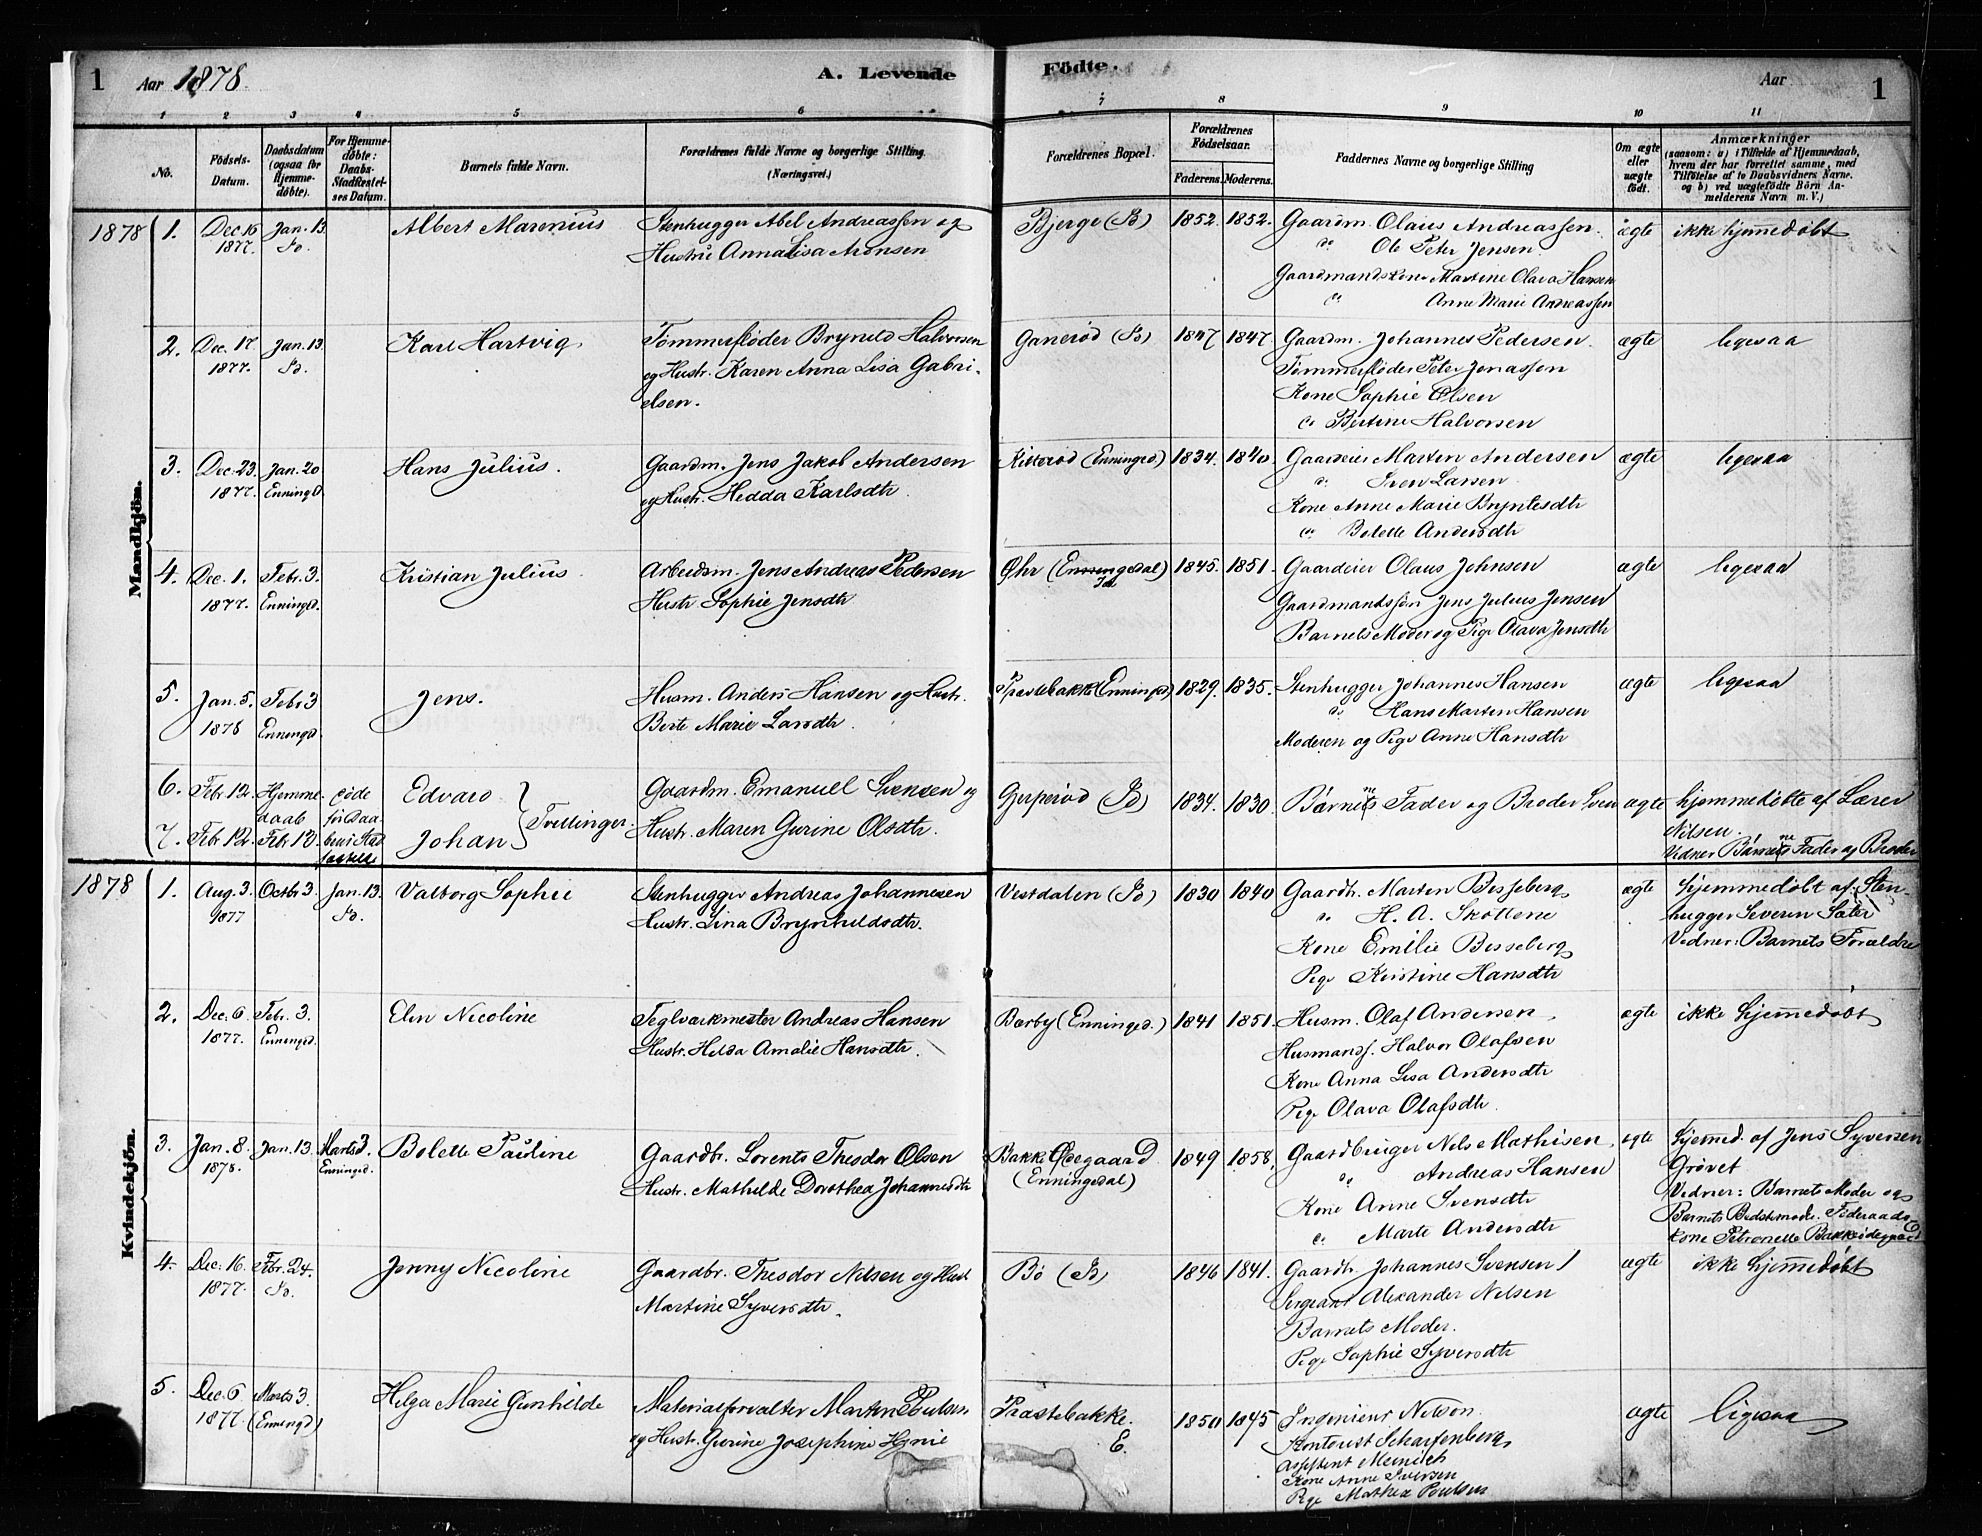 1 Aar 1878. A. Levende Födte. Aar 1
1 2 3 4 5 6 7 8 9 10 11
No. Födsels-Datum. Daabsdatum (ogsaa for Hjemmedöbte). For Hjemmedöbte: Daabs-Stadfæstelses Datum. Barnets fulde Navn. Forældrenes fulde Navne og borgerlige Stilling. (Næringsvei.) Forældrenes Bopæl. Forældrenes Födselsaar. Faderens. Moderens. Faddernes Navne og borgerlige Stilling Om ægte eller uægte födt. Anmærkninger (saasom: a) i Tilfælde af Hjemmedaab, hvem der har forrettet samme, med Tilföielse af to Daabsvidners Navne. og b) ved uægtefödte Börn Anmelderens Navn m. V.)
Mandkjön.
1878 1. Dec 16 1877. Jan. 13 Albert Marenius
Stenhugger Abel Andreassen og
Hustru Anna Lisa Aronsen
Bjerge 1852. 1852.
Gaardm. Olaus Andreassen.
do Ole Peter Jensen.
Gaardmandskone Martine Olava Hansen
do Anne Marie Andreassen
ægte ikke hjemmedöbt
2. Dec. 17. 1877. Jan. 13 Karl Hartvig
Tömmerflöder Brynild Halvorsen
og Hustr. Karen Anna Lisa Gabri-
elsen.
Ganeröd 1847 1847.
Gaardm. Johannes Pedersen.
Tömmerflöder Peter Jonassen
Kone Sophie Olsen
do Bertine Halvorsen
ægte ligesaa
3. Dec. 23. 1877. Jan. 20 Enningd. Hans Julius.
Gaardm. Jens Jakob Andersen
og Hustr. Hedda Karlsdtr.
(Enninged.) 1834. 1840.
Gaardeier Marten Andersen
do Sven Larsen
Kone Anne Marie Bryntesdtr
do Bolette Andersdtr
ægte ligesaa
4. Dec. 1. 1877. Febr. 3 Enninged. Kristian Julius.
Arbeidsm. Jens Andreas Pedersen
Hustr Sophie Jensdtr
Öhr (Enningedal) 1845. 1851.
Gaardeier Olaus Johnsen
Gaardmandssön Jens Julius Jensen
Barnets Moder og Pige Olava Jensdtr
ægte ligesaa
5. Jan. 5. 1878 Febr 3 Enninged. Jens.
Husm. Anders Hansen og Hustr.
Berte Marie Larsdtr.
Præstebakke (Enninged) 1829. 1835.
Stenhugger Johannes Hansen
do Hans Marten Hansen
Moderen og Pige Anne Hansdtr
ægte ligesaa
6. Febr 12. Hjemme-
daab Edvard
7. Febr 12. Febr 12. Johan Tvillinger.
Gaardm. Emanuel Svensen og
Hustr. Maren Gurine Olsdtr.
Gjerperöd 1834. 1830.
Börnenes Fader og Broder Sven ægte
hjemmedöbte af Lærer
Nilsen.
Vidner Börnenes Fader og Broder
Kvindekjön.
1878 1. Aug. 3. 1877 Octbr 3 Jan. 13. Valborg Sophie
Stenhugger Andreas Johannesen
Hustr. Lina Brynhildsdtr.
Vestdalen 1830 1840
Gaardbr. Marten Bisseberg
do H. A. Skottene
Kone Emilie Bisseberg
Pige Kristine Hansdtr
ægte
hjemmedöbt af Sten-
hugger Severin Sæter
Vidner: Barnets Forældre
2. Dec. 6 1877. Febr. 3. Enninged. Elin Nicoline
Teglværkmester Andreas Hansen
Hustr. Helda Amalie Hansdtr.
Bærby (Enninged.) 1841 1851.
Husm. Olaf Andersen,
Husmands. Halvor Olafsen
Kone Anna Lisa Andersdtr
Pige Olava Olafsdtr.
ægte ikke hjemmedöbt
3. Jan. 8. 1878. Jan. 13. Marts 3. Enninged. Bolette Pauline
Gaardbr. Lorents Theodor Olsen
Hustr. Mathilde Dorothea Johannesdtr
Bakke Ödegaard
(Enningedal) 1849 1858.
Gaardbruger Nils Mathisen,
do Andreas Hansen
Kone Anne Svensdtr
do Marte Andersdtr
ægte
hjemmed. af Jens Syversen
Grövet
Vidner: Barnets Moder og
Barnets Bedstemode. Föderaads
Kone Petronelle Bakkeödegaard
4. Dec. 16. 1877. Febr. 24. Jenny Nicoline
Gaardbr. Theodor Nilsen og Hust
Martine Syversdtr.
Bö 1846 1841.
Gaardbr. Johannes Svensen
Sergeant Alexander Nilsen
Barnets Moder.
Pige Sophie Syversdtr
ægte ikke hjemmedöbt
5. Dec. 6 1877. Marts 3. (Enninged) Helga Marie Gunhilde
Materialforvalter Marten Poulsen
og Hustr. Gurine Josephine Hynie
Præstebakke.
E. 1850 1845
Ingenieur Nilson.
Kontorist Scharfenberg
Assistent Meinich
Kone Anne Iversen
Pige Mathea Poulsen
ægte ligesaa